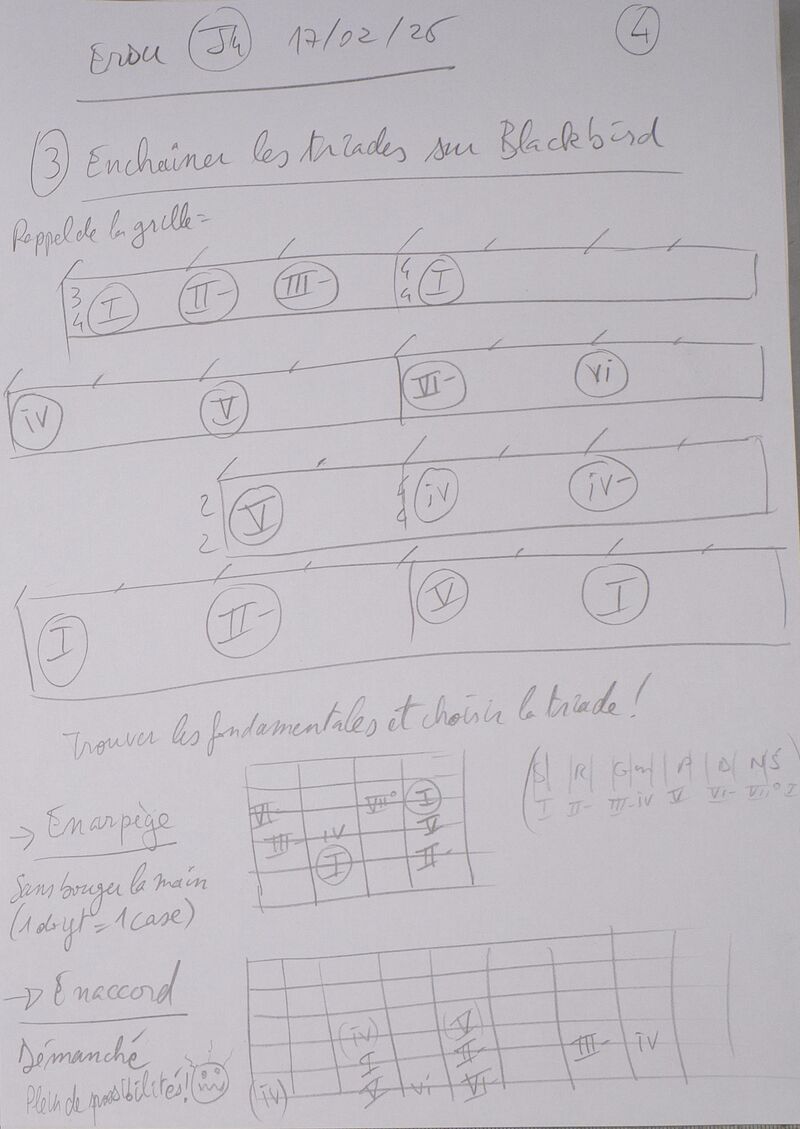 Ersu J4 17/02/26 4
3 Enchaîner les triades sur Blackbird
Rappel de la grille =
3/4 I II- III- 4/4 I
iv V VI- vi
2/2 V 4/4 iv iv-
I II- V I
Trouver les fondamentales et choisir la triade !
(S| |R| |G|m| |P| |D| |N|Ṡ
I II- III- iv V VI- VII° I)
→ En arpège
Sans bouger la main
(1 doigt = 1 case)
VI- VII° I
III- iv V
I II-
→ En accord
Démanché
Plein de possibilités !
(iv) (V)
I II- III- iv
(iv) V vi VI-